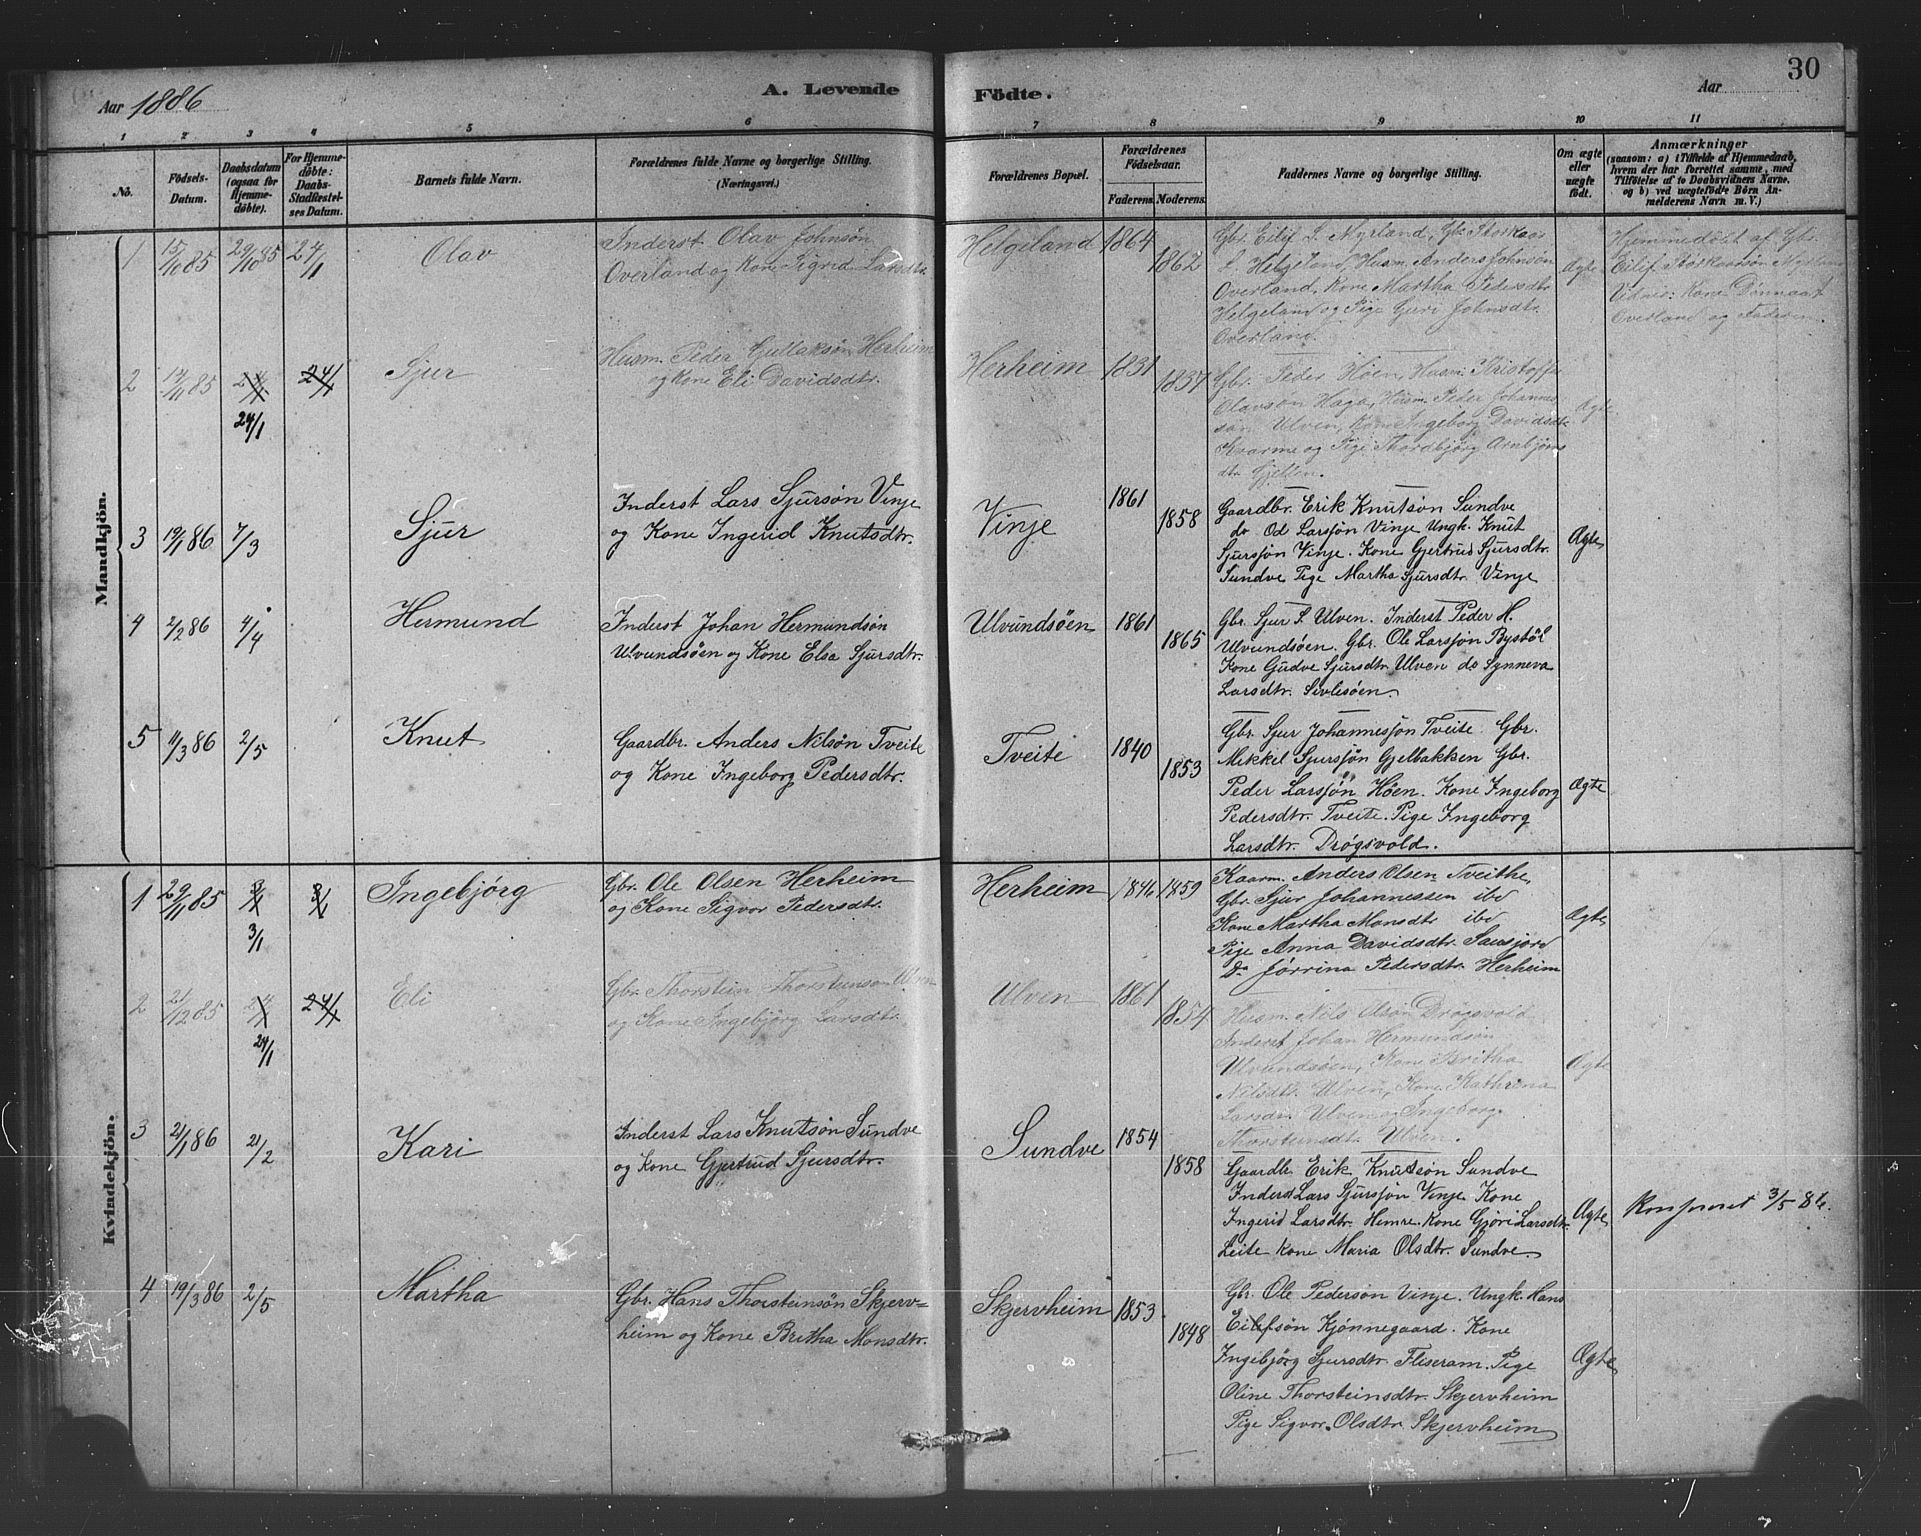 Aar 1886
A. Levende
Födte.
Aar
30
1
2
3
4
5
6
7
8
9
10
11
No.
Födsels-
Datum.
Daabsdatum
(ogsaa for
Hjemme-
döbte).
For Hjemme-
döbte:
Daabs-
Stadfæstel-
ses Datum.
Barnets fulde Navn.
Forældrenes fulde Navne og borgerlige Stilling.
(Næringsvei.)
Forældrenes Bopæl.
Forældrenes
Födselsaar.
Faderens.
Moderens.
Faddernes Navne og borgerlige Stilling.
Om ægte
eller
uægte
födt.
Anmærkninger
(saasom: a) i Tilfælde af Hjemmedaab,
hvem der har forrettet samme, med
Tilföielse af to Daabsvidners Navne,
og b) ved uægtefödte Börn An-
melderens Navn m. V.)
Mandkjön.
1
15/10 85
29/10 85
24/1
Olav
Inderst Olav Johnsön
Overland og Kone Sigrid Larsdtr.
Helgeland
1864
1862
Gbr. Eilif S. Nyrland, Gbr. Storkaar
S. Helgeland, Husm. Anders Johnsön
Overland, Kone Martha Pedersdtr.
Helgeland og Pige Guri Johnsdtr.
Overland.
Ægte
Hjemmedöbt af Gbr.
Eilif Storkaarsön Nyrland
Vidner: Kone
Overland og Faderen.
2
85
24/1
24/1
24/1
Sjur
Husm. Peder Gullaksön Herheim
og Kone Eli Davidsdtr.
Herheim
1831
1837
Gbr. Peder Höen, Husm. Kristoffer
Olavsön Haga, Husm. Peder Johannes
sön Ulven, Kone Ingeborg Davidsdtr.
Kvarme og Pige Thordbjörg Arnbjörns
dtr. Gjellen.
Ægte
3
19/1 86
7/3
Sjur
Inderst Lars Sjursön Vinje
og Kone Ingerid Knutsdtr.
Vinje
1861
1858
Gaardbr. Erik Knutsön Sundve
do Od Larsjön Vinje Ungk. Knut
Sjursjön Vinje. Kone Gjertrud Sjursdtr.
Sundve Pige Martha Sjursdtr. Vinje
Ægte
4
2/2 86
4/4
Hermund
Inderst Johan Hermundsön
Ulvundsöen og Kone Elsa Sjursdtr.
Ulvundsöen
1861
1865
Gbr. Sjur S. Ulven. Inderst Peder H.
Ulvundsöen. Gbr. Ole Larsjön Bystöl
Kone Gudve Sjursdtr. Ulven do Synneva
Larsdtr. Sivlesöen.
5
11/3 86
2/5
Knut
Gaardbr. Anders Nilsön Tveite
og Kone Ingeborg Pedersdtr.
Tveite
1840
1853
Gbr. Sjur Johannesjön Tveite Gbr.
Mikkel Sjursjön Gjelbakken Gbr.
Peder Larsjön Höen. Kone Ingeborg
Pedersdtr. Tveite. Pige Ingeborg
Larsdtr. Drögsvold.
Ægte
Kvindekjön.
1
29/11 85
3/1
3/1
3/1
Ingebjörg
Gbr. Ole Olsen Herheim
og Kone Sigvor Pedersdtr.
Herheim
1846
1859
Kaarm. Anders Olsen Tveithe,
Gbr. Sjur Johannessen ibd
Kone Martha Monsdtr ibd
Pige Anna Davidsdtr.
Do Jörrina Pedersdtr. Herheim
Ægte
2
21/12 85
24/1
24/1
24/1
Eli
Gbr. Thorstein Thorsteinson Ulven
og Kone Ingebjörg Larsdtr.
Ulven
1861
1854
Husm. Nils Olsön Drögsvold
Inderst Johan Hermundsön
Ulvundsöen, Kone Britha
Nilsdtr. Ulven, Kone Kathrina
Larsdtr. Ulven og Ingeborg
Thorsteinsdtr. Ulven.
Ægte
3
2/1 86
21/2
Kari
Inderst Lars Knutsön Sundve
og Kone Gjertrud Sjursdtr.
Sundve
1854
1858
Gaardb. Erik Knutsön Sundve
Inderst Lars Sjursjön Vinje Kone
Ingerid Larsdtr. Hemre. Kone Gjöri Larsdtr.
Leite Kone Maria Olsdtr. Sundve.
Ægte
3/5 86.
4
19/3 86
2/5
Martha
Gbr. Hans Thorsteinsön Skjerv=
heim og Kone Britha Monsdtr.
Skjervheim
1853
1848
Gbr. Ole Pedersön Vinje. Ungk. Hans
Eilefsön Kjönnegaard. Kone
Ingebjörg Sjursdtr. Fliseram. Pige
Oline Thorsteinsdtr. Skjervheim
Pige Sigvor Olsdtr. Skjervheim
Ægte